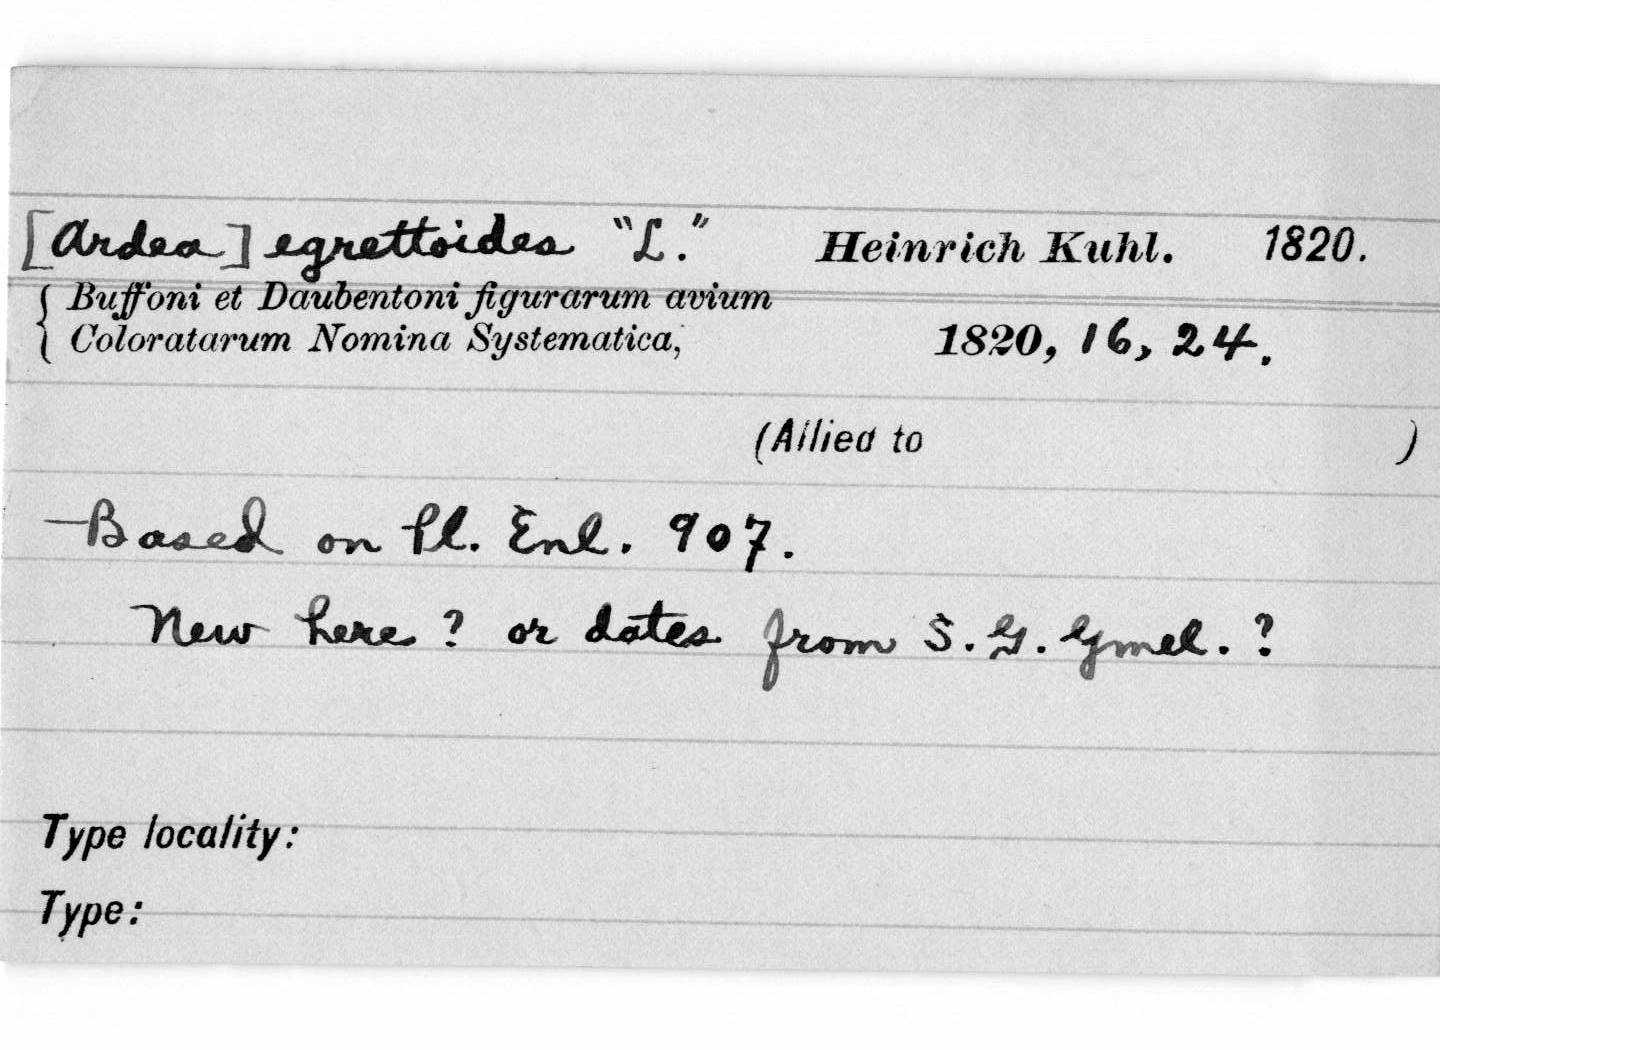 [Ardea] egrettoides "L." Heinrich Kuhl. 1820.
Buffoni et Daubentoni figurarum avium
Coloratarum Nomina Systematica, 1820, 16, 24.
(Allied to )
Based on Pl. Enl. 907.
New here? or dates from S. G. Gmel.?
Type locality:
Type: